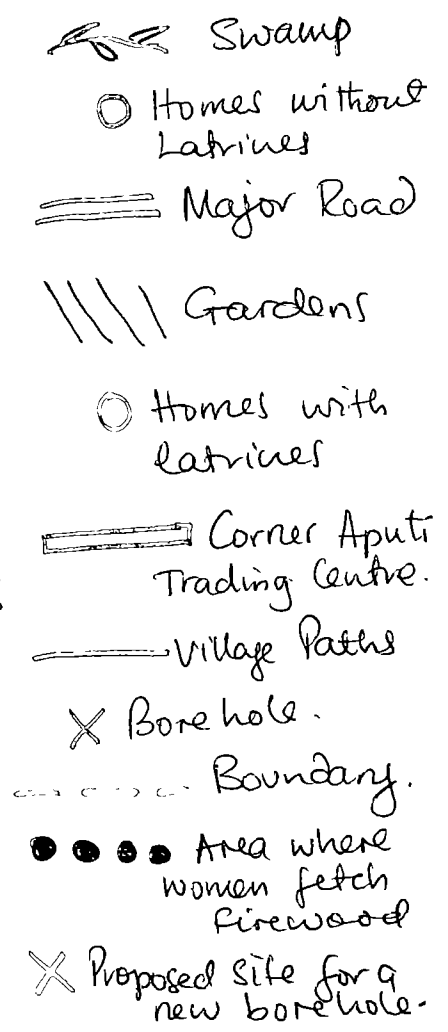 Swamp
Homes without
Latrines
Major Road
Gardens
Homes with
latrines
Corner Aputi
Trading Centre.
Village Paths
Borehole.
Boundary.
Area where
women fetch
firewood
Proposed site for a
new borehole.